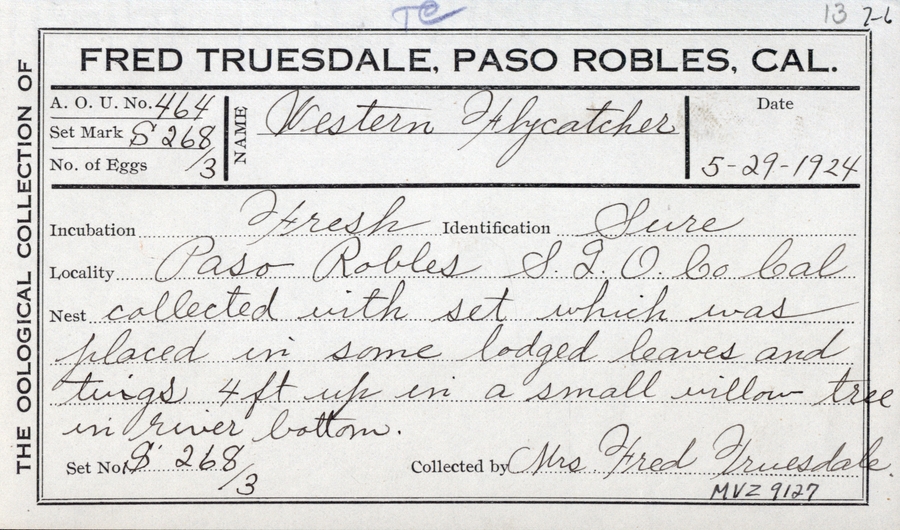 TC
13 7-6
THE OOLOGICAL COLLECTION OF
FRED TRUESDALE, PASO ROBLES, CAL.
A. O. U. No. 464
Set Mark S 268/3
No. of Eggs
NAME Western Flycatcher
Date
5-29-1924
Incubation Fresh Identification Sure
Locality Paso Robles S. L. O. Co Cal
Nest collected with set which was
placed in some lodged leaves and
twigs 4 ft up in a small willow tree
in river bottom.
Set No. S 268/3 Collected by Mrs. Fred Truesdale.
MVZ 9127